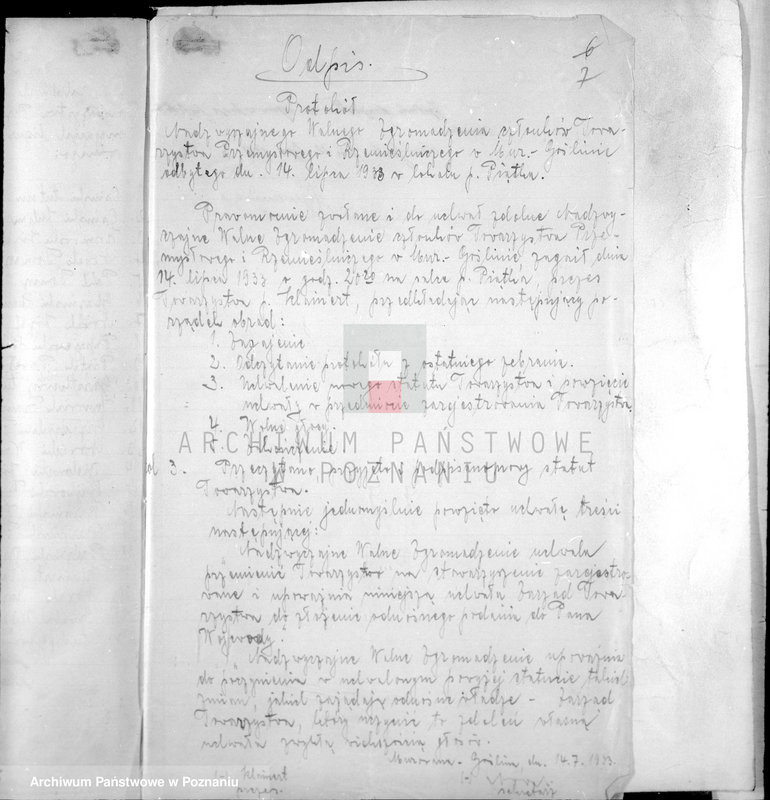 Odpis.
6
7
Protokół
Nadzwyczajnego Walnego Zgromadzenia członków Towa-
rzystwa Przemysłowego i Rzemieślniczego w Mur.- Goślinie
odbytego dn. 14. lipca 1933 w lokalu p. Piątka.
Prawomocnie zwołane i do uchwał zdolne Nadzwy-
czajne Walne Zgromadzenie członków Towarzystwa Prze-
mysłowego i Rzemieślniczego w Mur.- Goślinie zagaił dnia
14. lipca 1933 o godz. 20²⁰ na salce p. Piątka prezes
Towarzystwa p. Klainert, przedkładając następujący po-
rządek obrad:
1. Zagajenie
2. Odczytanie protokółu z ostatniego zebrania.
3. Uchwalenie nowego statutu Towarzystwa i powzięcie
uchwały w przedmiocie zarejestrowania Towarzystwa
4. Wolne głosy.
5. Zakończenie
ad 3. Przeczytano przyjęto i podpisano nowy statut
Towarzystwa.
Następnie jednomyślnie powzięto uchwałę treści
następującej:
Nadzwyczajne Walne Zgromadzenie uchwala
przemienić Towarzystwo na stowarzyszenie zarejestro-
wane i upoważnia niniejszą uchwałą Zarząd Towa-
rzystwa do złożenia odnośnego podania do Pana
Wojewody.
Nadzwyczajne Walne Zgromadzenie upoważnia
do poczynienia w uchwalonym powyżej statucie takich
zmian, jakich zażądają odnośne władze - Zarząd
Towarzystwa, który uczynić to zdoleń własną
uchwałą zwykłą większością głosów.
Murowana - Goślina, dn. 14.7.1933.
Klainert
prezes.
sekretarz
ARCHIWUM PAŃSTWOWE
W POZNANIU
Archiwum Państwowe w Poznaniu